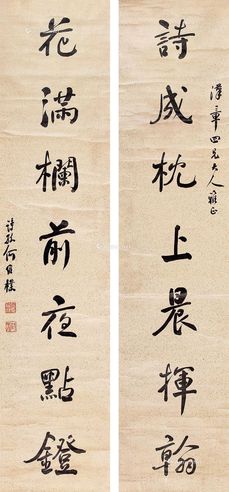 詩成枕上晨揮翰
漢章四兄大人雅正
花滿欄前夜點鐙
詩孫何維樸